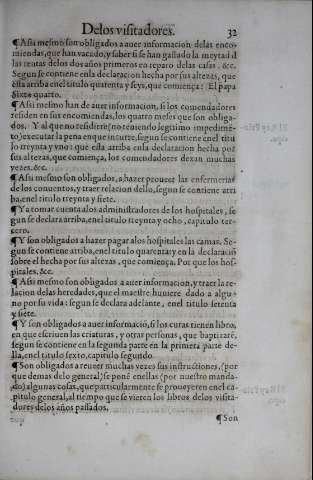 Delos visitadores. 32
¶ Assi mesmo son obligados a auer informacion delas enco-
miendas, que han vacado, y saber si se han gastado la meytad d̃
las rentas delos dos años primeros en reparo delas casas. &c.
Segun se contiene enla declaracion hecha por sus altezas, que
esta arriba enel titulo quarenta y seys, que comiença: El papa
Sixto quarto.
¶ Assi mesmo han de auer informacion, si los comendadores
residen en sus encomiendas, los quatro meses que son obliga-
dos. Y al que no residiere (no teniendo legitimo impedimē-
to) executar la pena en que incurre, segun se contiene enel titu
lo treynta y vno: que esta arriba enla declaracion hecha por
sus altezas, que comiença, los comendadores dexan muchas
vezes. &c.
¶ Assi mesmo son obligados, a hazer proueer las enfermerias
de los conuentos, y traer relacion dello, segun se contiene arri
ba, enel titulo treynta y siete.
¶ Y a tomar cuenta alos administradores de los hospitales, se
gun se declara arriba, enel titulo treynta y ocho, capitulo ter-
cero.
¶ Y son obligados a hazer pagar alos hospitales las camas. Se-
gun se contiene arriba, enel titulo quarenta: y en la declaraciō
sobre el hecha por sus altezas, que comiença. Por que los hos-
pitales. &c.
¶ Assi mesmo son obligados a auer informacion, y traer la re-
lacion delas heredades, que el maestre huuiere dado a algu-
no por su vida: segun se declara adelante, enel titulo setenta
y siete.
¶ Y son obligados a auer informaciō, si los curas tienen libro,
en que escriuan las criaturas, y otras personas, que baptizarē,
segun se contiene en la segunda parte en la primera parte de-
lla, enel titulo sexto, capitulo segundo.
¶ Son obligados a reueer muchas vezes sus instructiones, (por
que demas delo general) se ponē enellas (por nuestro manda-
do) algunas cosas, que particularmente se proueyeren enel ca-
pitulo general, al tiempo que se vieren los libros delos visita-
dores delos años passados.
¶ Son